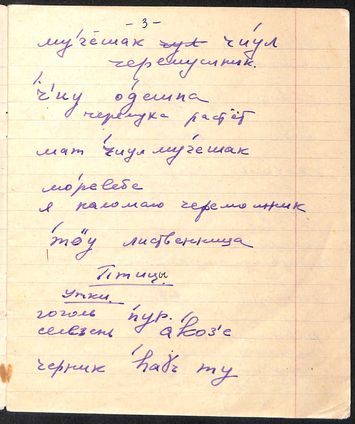 - 3 -
му́чешак чи́ул
черемушник.
чи́ну о́дешпа
черемуха растёт
мат чиул му́чешак
мо́ревебе
я наломаю черемошник
то̄у лиственница
Птицы
Утки.
гоголь пур.
селезень
черник ту